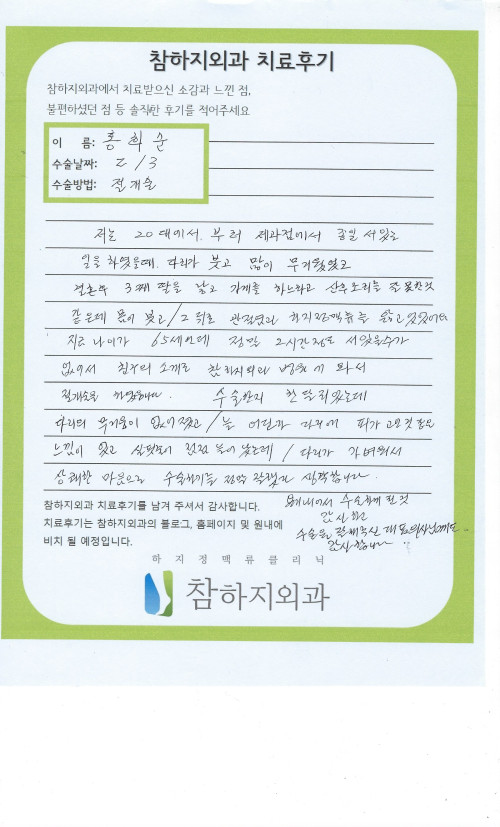 참하지외과 치료후기
참하지외과에서 치료받으신 소감과 느낀 점,
불편하셨던 점 등 솔직한 후기를 적어주세요
이 름: 홍 희 순
수술날짜: 2/3
수술방법: 절개술
저는 20대에서 부터 제과점에서 종일 서있는
일을 하였을때. 다리가 붓고 많이 무거웠었고
결혼후 3째 딸을 낳고 가게를 하느라고 산후조리를 잘 못한것
같은데 몸이 붓고 / 그 뒤로 관절염과 하지정맥류를 앓고 있었어요
지금 나이가 65세인데 정말 2시간 정도 서있을수가
없어서 친구의 소개로 참하지외과 병원에 와서
절개술을 하였습니다. 수술한지 한달 되었는데
다리의 무거움이 없어졌고 / 늘 어딘가 다리에 피가 고요것 같은
느낌이 없고 실핏줄이 점점 늘어 났는데 / 다리가 가벼워서
상쾌한 마음으로 수술하기를 정말 잘했다 생각합니다.
참하지외과 치료후기를 남겨 주셔서 감사합니다.
치료후기는 참하지외과의 블로그, 홈페이지 및 원내에
비치 될 예정입니다.
수술하게 된것
감사하고
수술을 잘해주신 대표의사님께도
감사합니다
하지정맥류클리닉
참하지외과